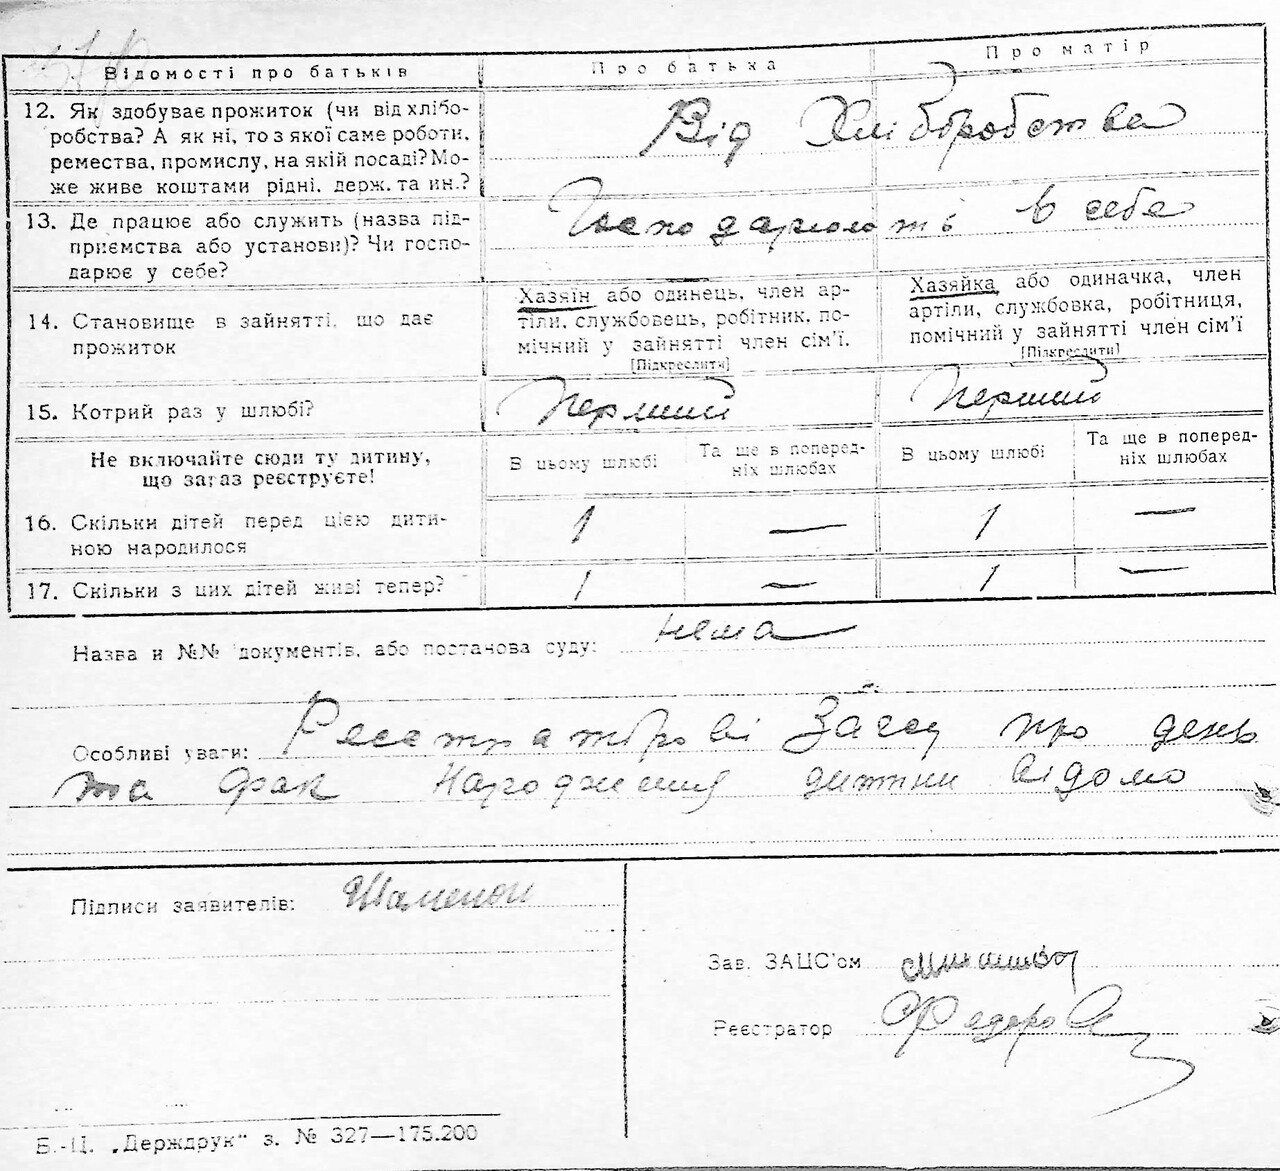 Відомості про батьків
Про батька
Про матір
12. Як здобуває прожиток (чи від хлібо-
робства? А як ні, то з якої саме роботи,
ремества, промислу, на якій посаді? Мо-
же живе коштами рідні, держ. та ин.?
Від Хліборобства
13. Де працює або служить (назва під-
приємства або установи)? Чи госпо-
дарює у себе?
в себе
14. Становище в зайнятті, що дає
прожиток
Хазяїн або одинець, член ар-
тілі, службовець, робітник, по-
мічний у зайнятті член сім'ї.
[Підкреслити]
Хазяйка або одиначка, член
артілі, службовка, робітниця,
помічний у зайнятті член сім'ї
[Підкреслити]
15. Котрий раз у шлюбі?
Перший
Перший
Не включайте сюди ту дитину,
що зараз реєструєте!
В цьому шлюбі
Та ще в поперед-
ніх шлюбах
В цьому шлюбі
Та ще в поперед-
ніх шлюбах
16. Скільки дітей перед цією дити-
ною народилося
1 — 1 —
17. Скільки з цих дітей живі тепер?
1 — 1 —
Назва и №№ документів, або постанова суду: нема
Особливі уваги: Реєстраторові Загсу про день
та фак народження дитини відомо
Підписи заявителів:
Зав. ЗАЦС'ом
Реєстратор Федоров
Б.-Ц. „Держдрук" з. № 327—175.200